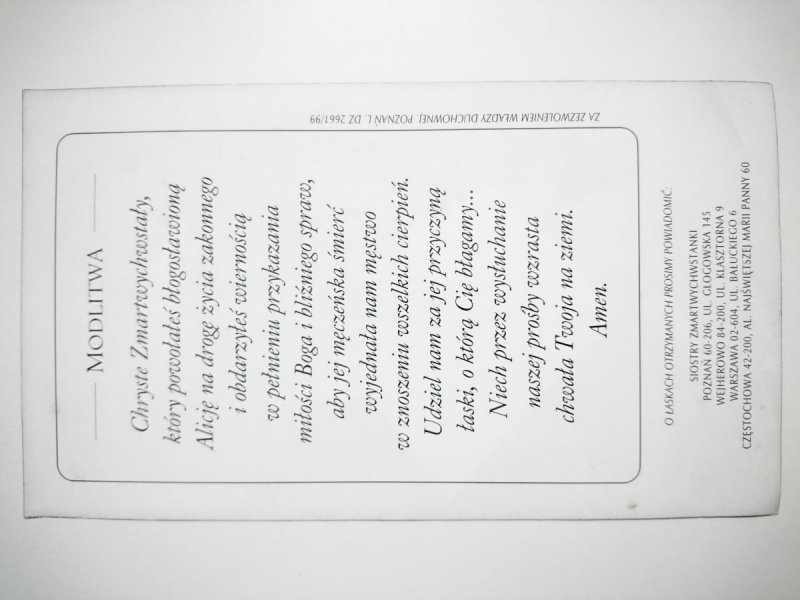 MODLITWA
Chryste Zmartwychwstały,
który powołałeś błogosławioną
Alicję na drogę życia zakonnego
i obdarzyłeś wiernością
w pełnieniu przykazania
miłości Boga i bliźniego spraw,
aby jej męczeńska śmierć
wyjednała nam męstwo
w znoszeniu wszelkich cierpień.
Udziel nam za jej przyczyną
łaski, o którą Cię błagamy...
Niech przez wysłuchanie
naszej prośby wzrasta
chwała Twoja na ziemi.
Amen.
ZA ZEZWOLENIEM WŁADZY DUCHOWNEJ. POZNAŃ L. DZ 2661/99
O ŁASKACH OTRZYMANYCH PROSIMY POWIADOMIĆ:
SIOSTRY ZMARTWYCHWSTANKI
POZNAŃ 60-206, UL. GŁOGOWSKA 145
WEJHEROWO 84-200, UL. KLASZTORNA 9
WARSZAWA 02-604, UL. BAŁUCKIEGO 6
CZĘSTOCHOWA 42-200, AL. NAJŚWIĘTSZEJ MARII PANNY 60